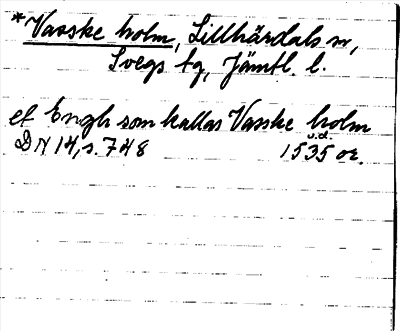 *Vasske holm, Lillhärdals sn,
Svegs tg, Jämtl. l.
et Engh som kallas Vasske holm
DN 14, s. 748 1535 u.d. or.